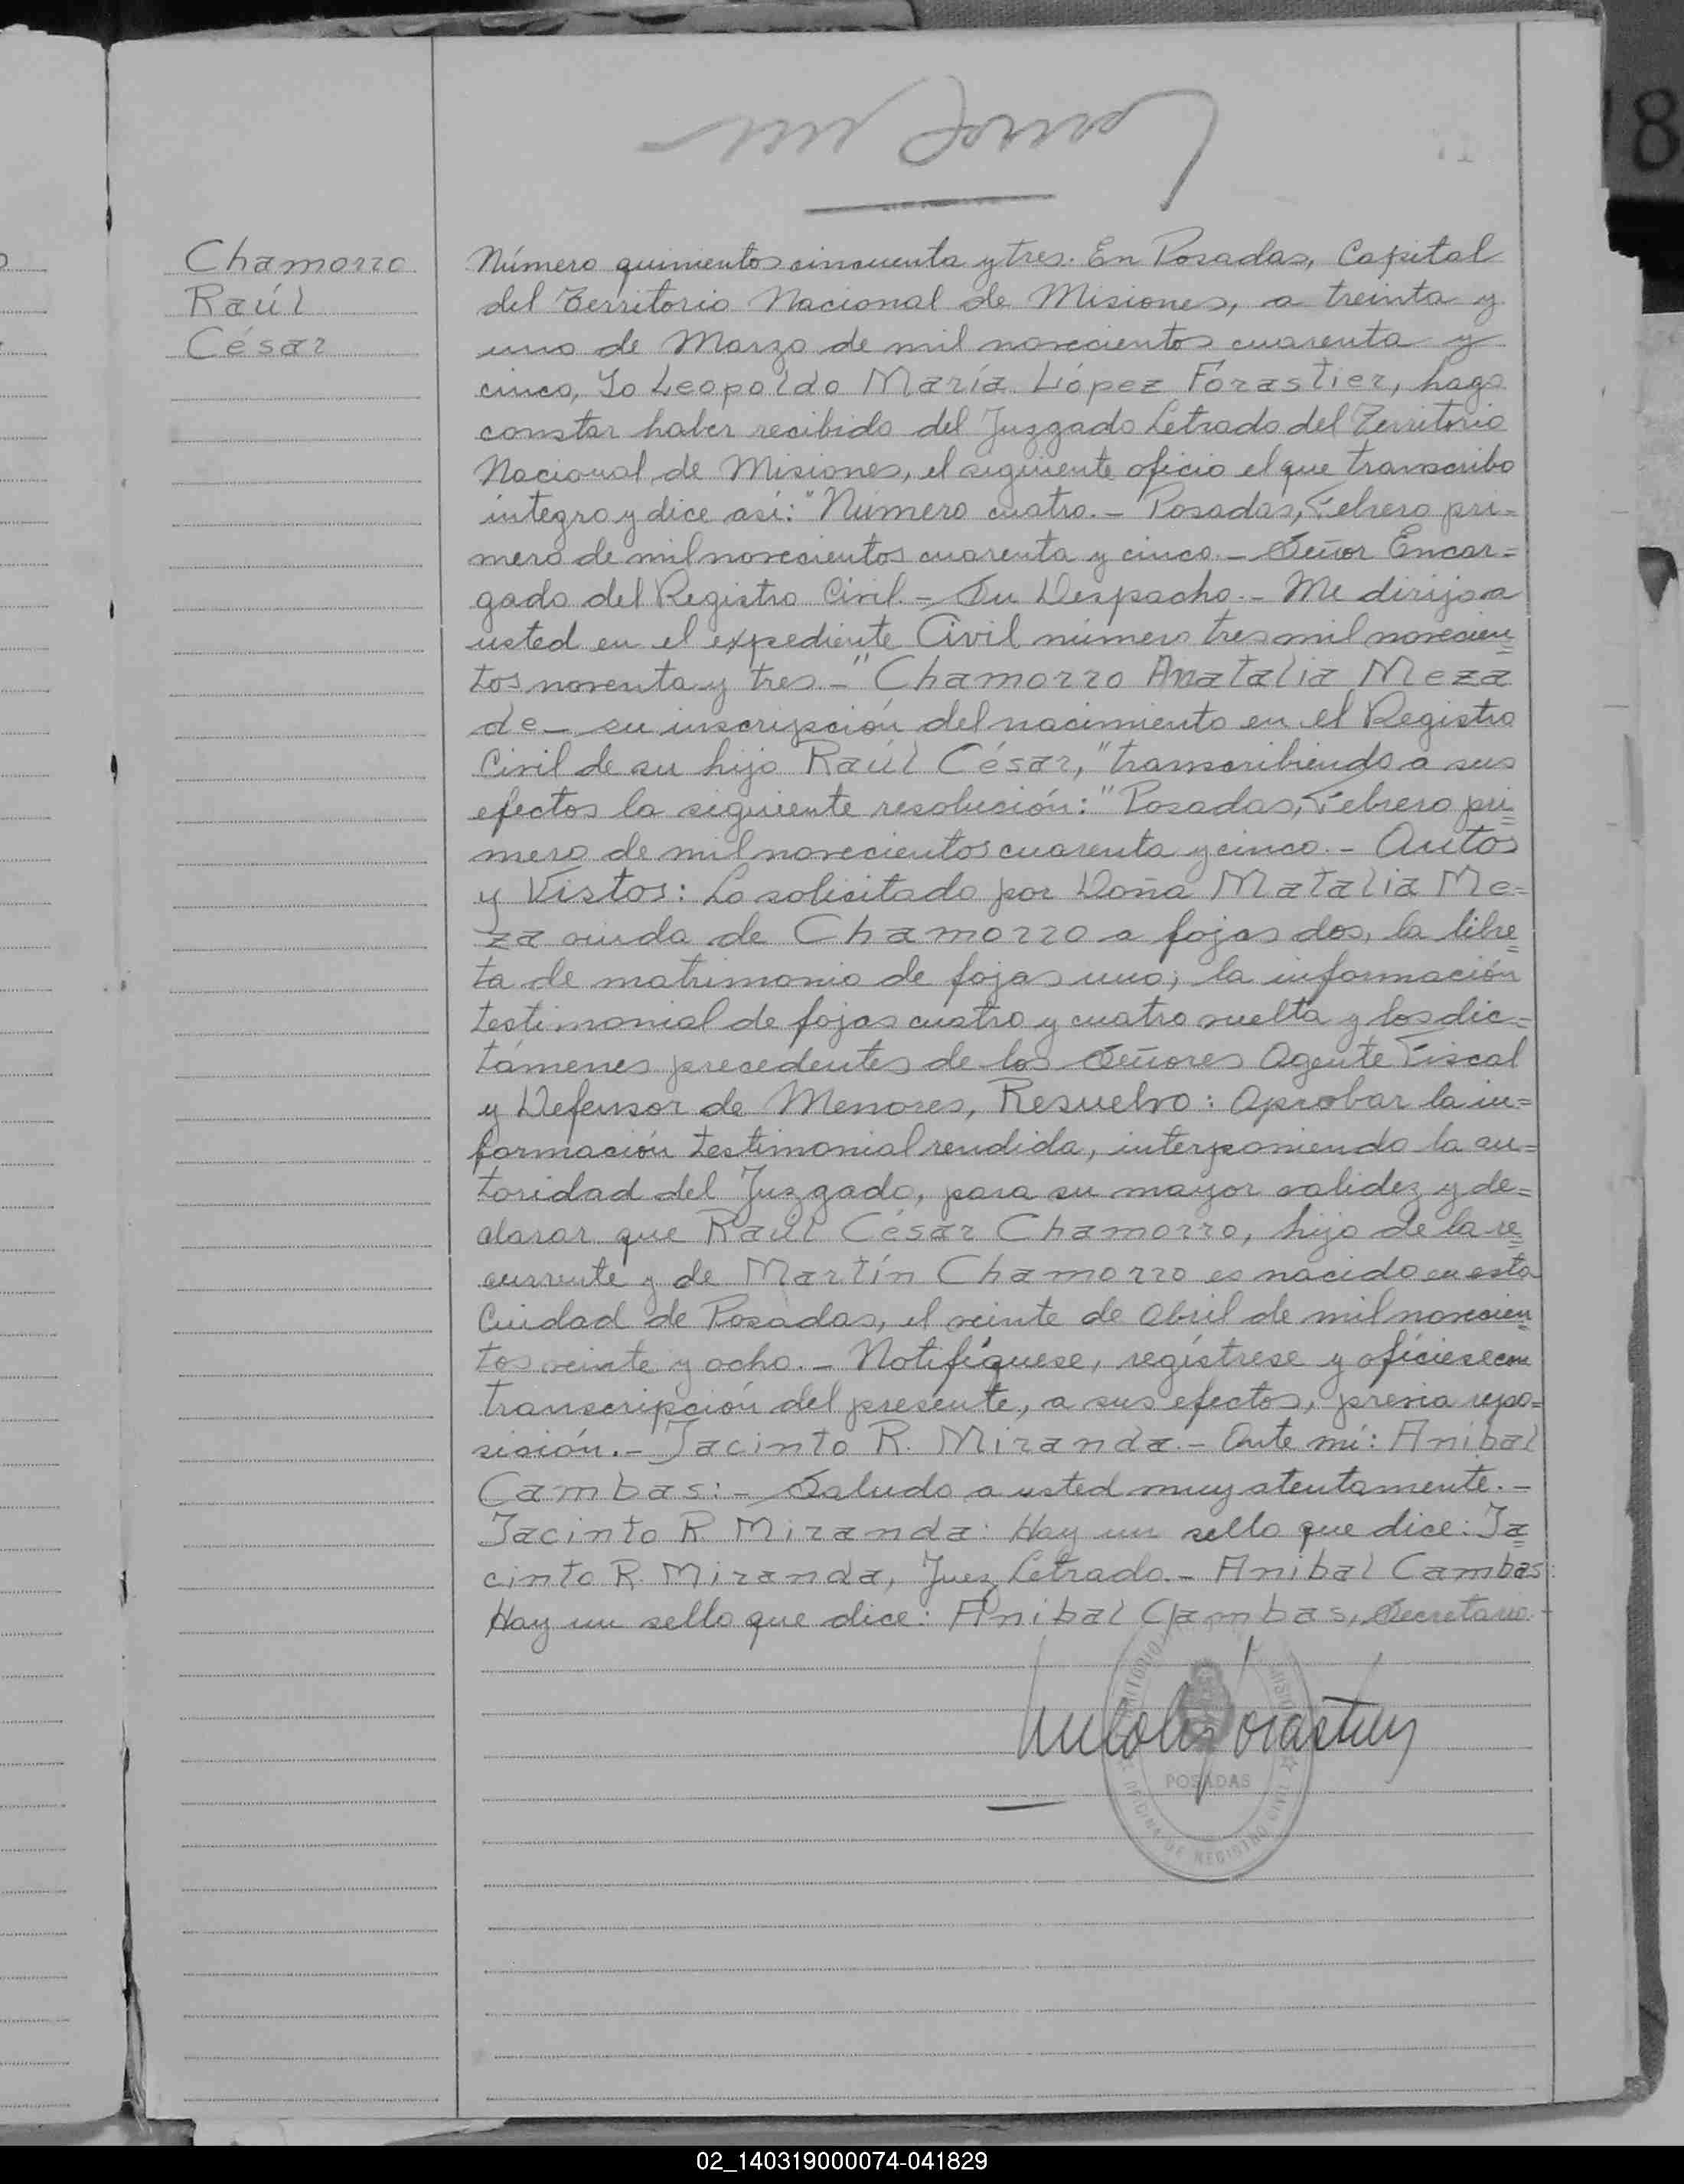 Chamorro
Raúl
César
Número quinientos cincuenta y tres. En Posadas, Capital
del Territorio Nacional de Misiones, a treinta y
uno de Marzo de mil novecientos cuarenta y
cinco, Yo Leopoldo María López Forastier, hago
constar haber recibido del Juzgado Letrado del Territorio
Nacional de Misiones, el siguiente oficio el que transcribo
integro y dice así: "Número cuatro.- Posadas, Febrero pri=
mero de mil novecientos cuarenta y cinco.- Señor Encar=
gado del Registro Civil.- Su Despacho.- Me dirijo a
usted en el expediente Civil número tres mil novecien=
tos noventa y tres.- "Chamorro Anatalia Meza
de - su inscripción del nacimiento en el Registro
Civil de su hijo Raúl César," transcribiendo a sus
efectos la siguiente resolución: "Posadas, Febrero pri=
mero de mil novecientos cuarenta y cinco.- Autos
y Vistos: Lo solicitado por Doña Matalia Me=
za viuda de Chamorro a fojas dos, la libre=
ta de matrimonio de fojas uno; la información
testimonial de fojas cuatro y cuatro vuelta y los dic=
támenes precedentes de los Señores Agente Fiscal
y Defensor de Menores, Resuelvo: Aprobar la in=
formación testimonial rendida, interponiendo la au=
toridad del Juzgado, para su mayor validez y de=
clarar que Raúl César Chamorro, hijo de la re=
currente y de Martín Chamorro es nacido en esta
Ciudad de Posadas, el veinte de Abril de mil novecien=
tos veinte y ocho.- Notifíquese, regístrese y ofíciese con
transcripción del presente, a sus efectos, previa repo=
sisión.- Jacinto R. Miranda.- Ante mí: Anibal
Cambas:- Saludo a usted muy atentamente.-
Jacinto R. Miranda: Hay un sello que dice: Ja=
cinto R. Miranda, Juez Letrado.- Anibal Cambas:
Hay un sello que dice: Anibal Cambas, Secretario.-
POSADAS
OFICINA DE REGISTRO CIVIL
8
02_140319000074-041829